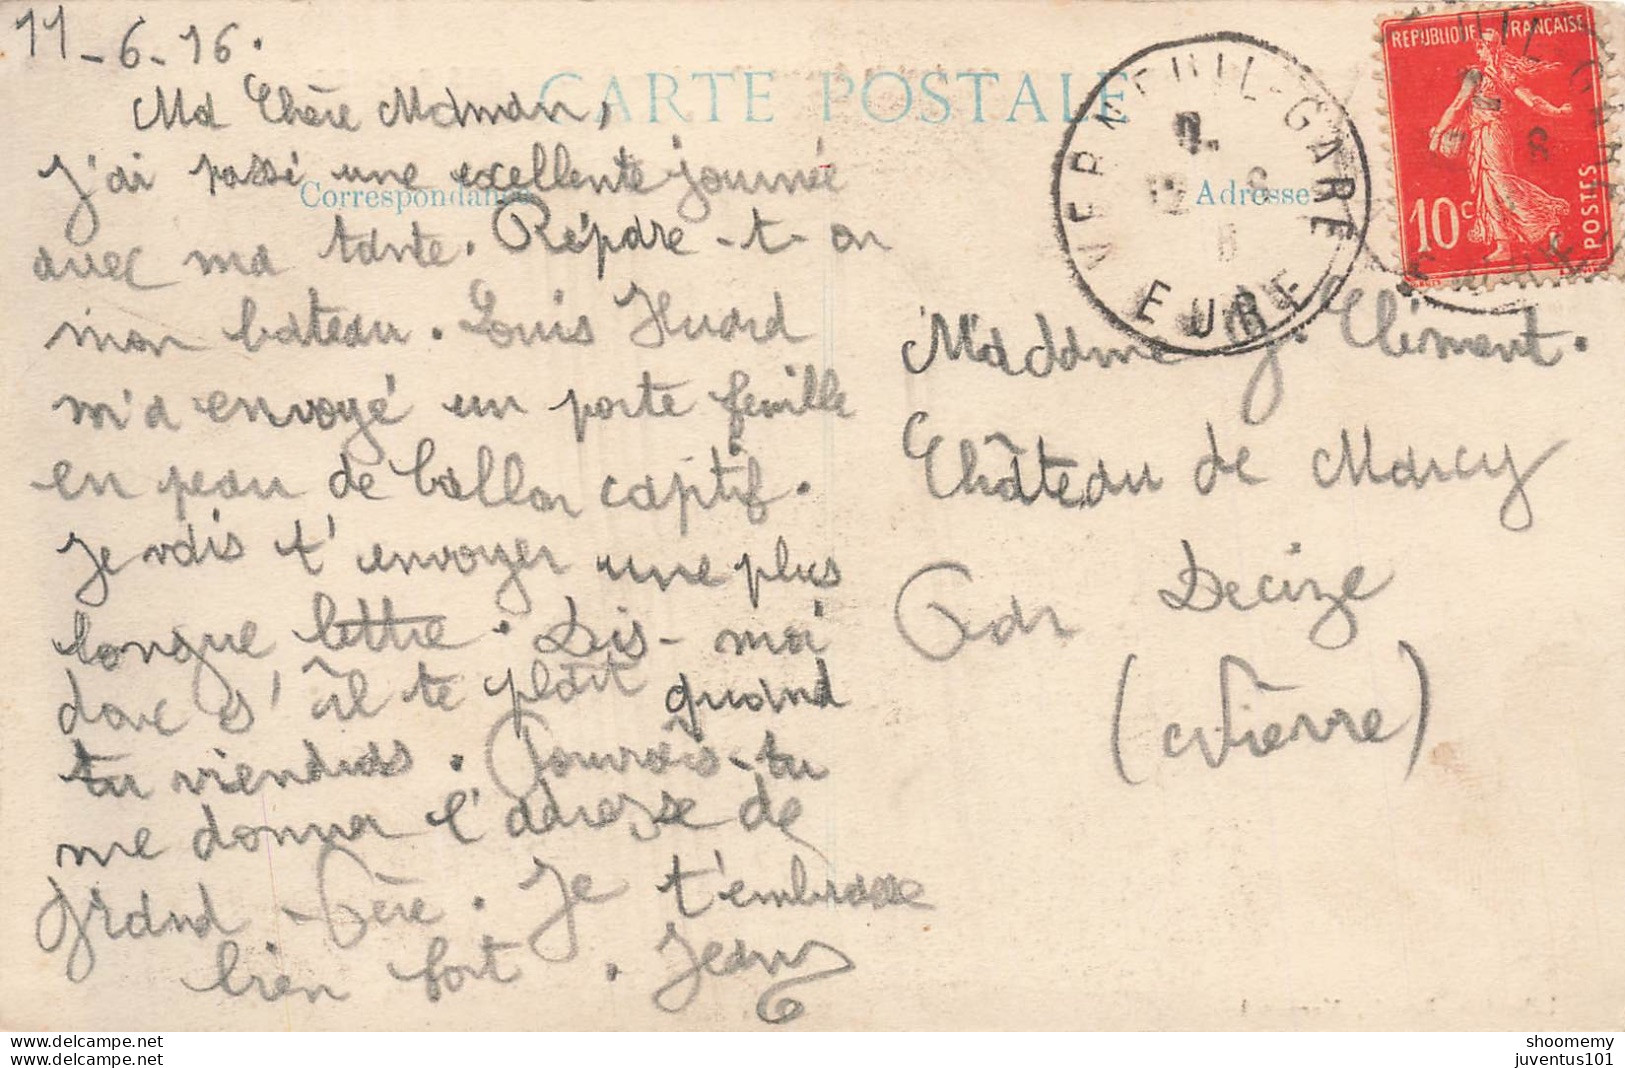 11-6-16.
CARTE POSTALE
Ma Chère Maman,
J'ai passé une excellente journée
Correspondance
avec ma tante. Répare-t-on
mon bateau. Louis Huard
m'a envoyé un porte feuille
en peau de ballon captif.
Je vais t'envoyer une plus
longue lettre. Dis-moi
donc s'il te plaît quand
tu viendras. Pourrais-tu
me donner l'adresse de
Grand-Père. Je t'embrasse
bien fort. Jean
Adresse
VERNEUIL-GARE
EURE
REPUBLIQUE FRANÇAISE
10c
POSTES
Madame J. Clément.
Château de Marcy
Par Decize
(Nièvre)
shoomemy
juventus101